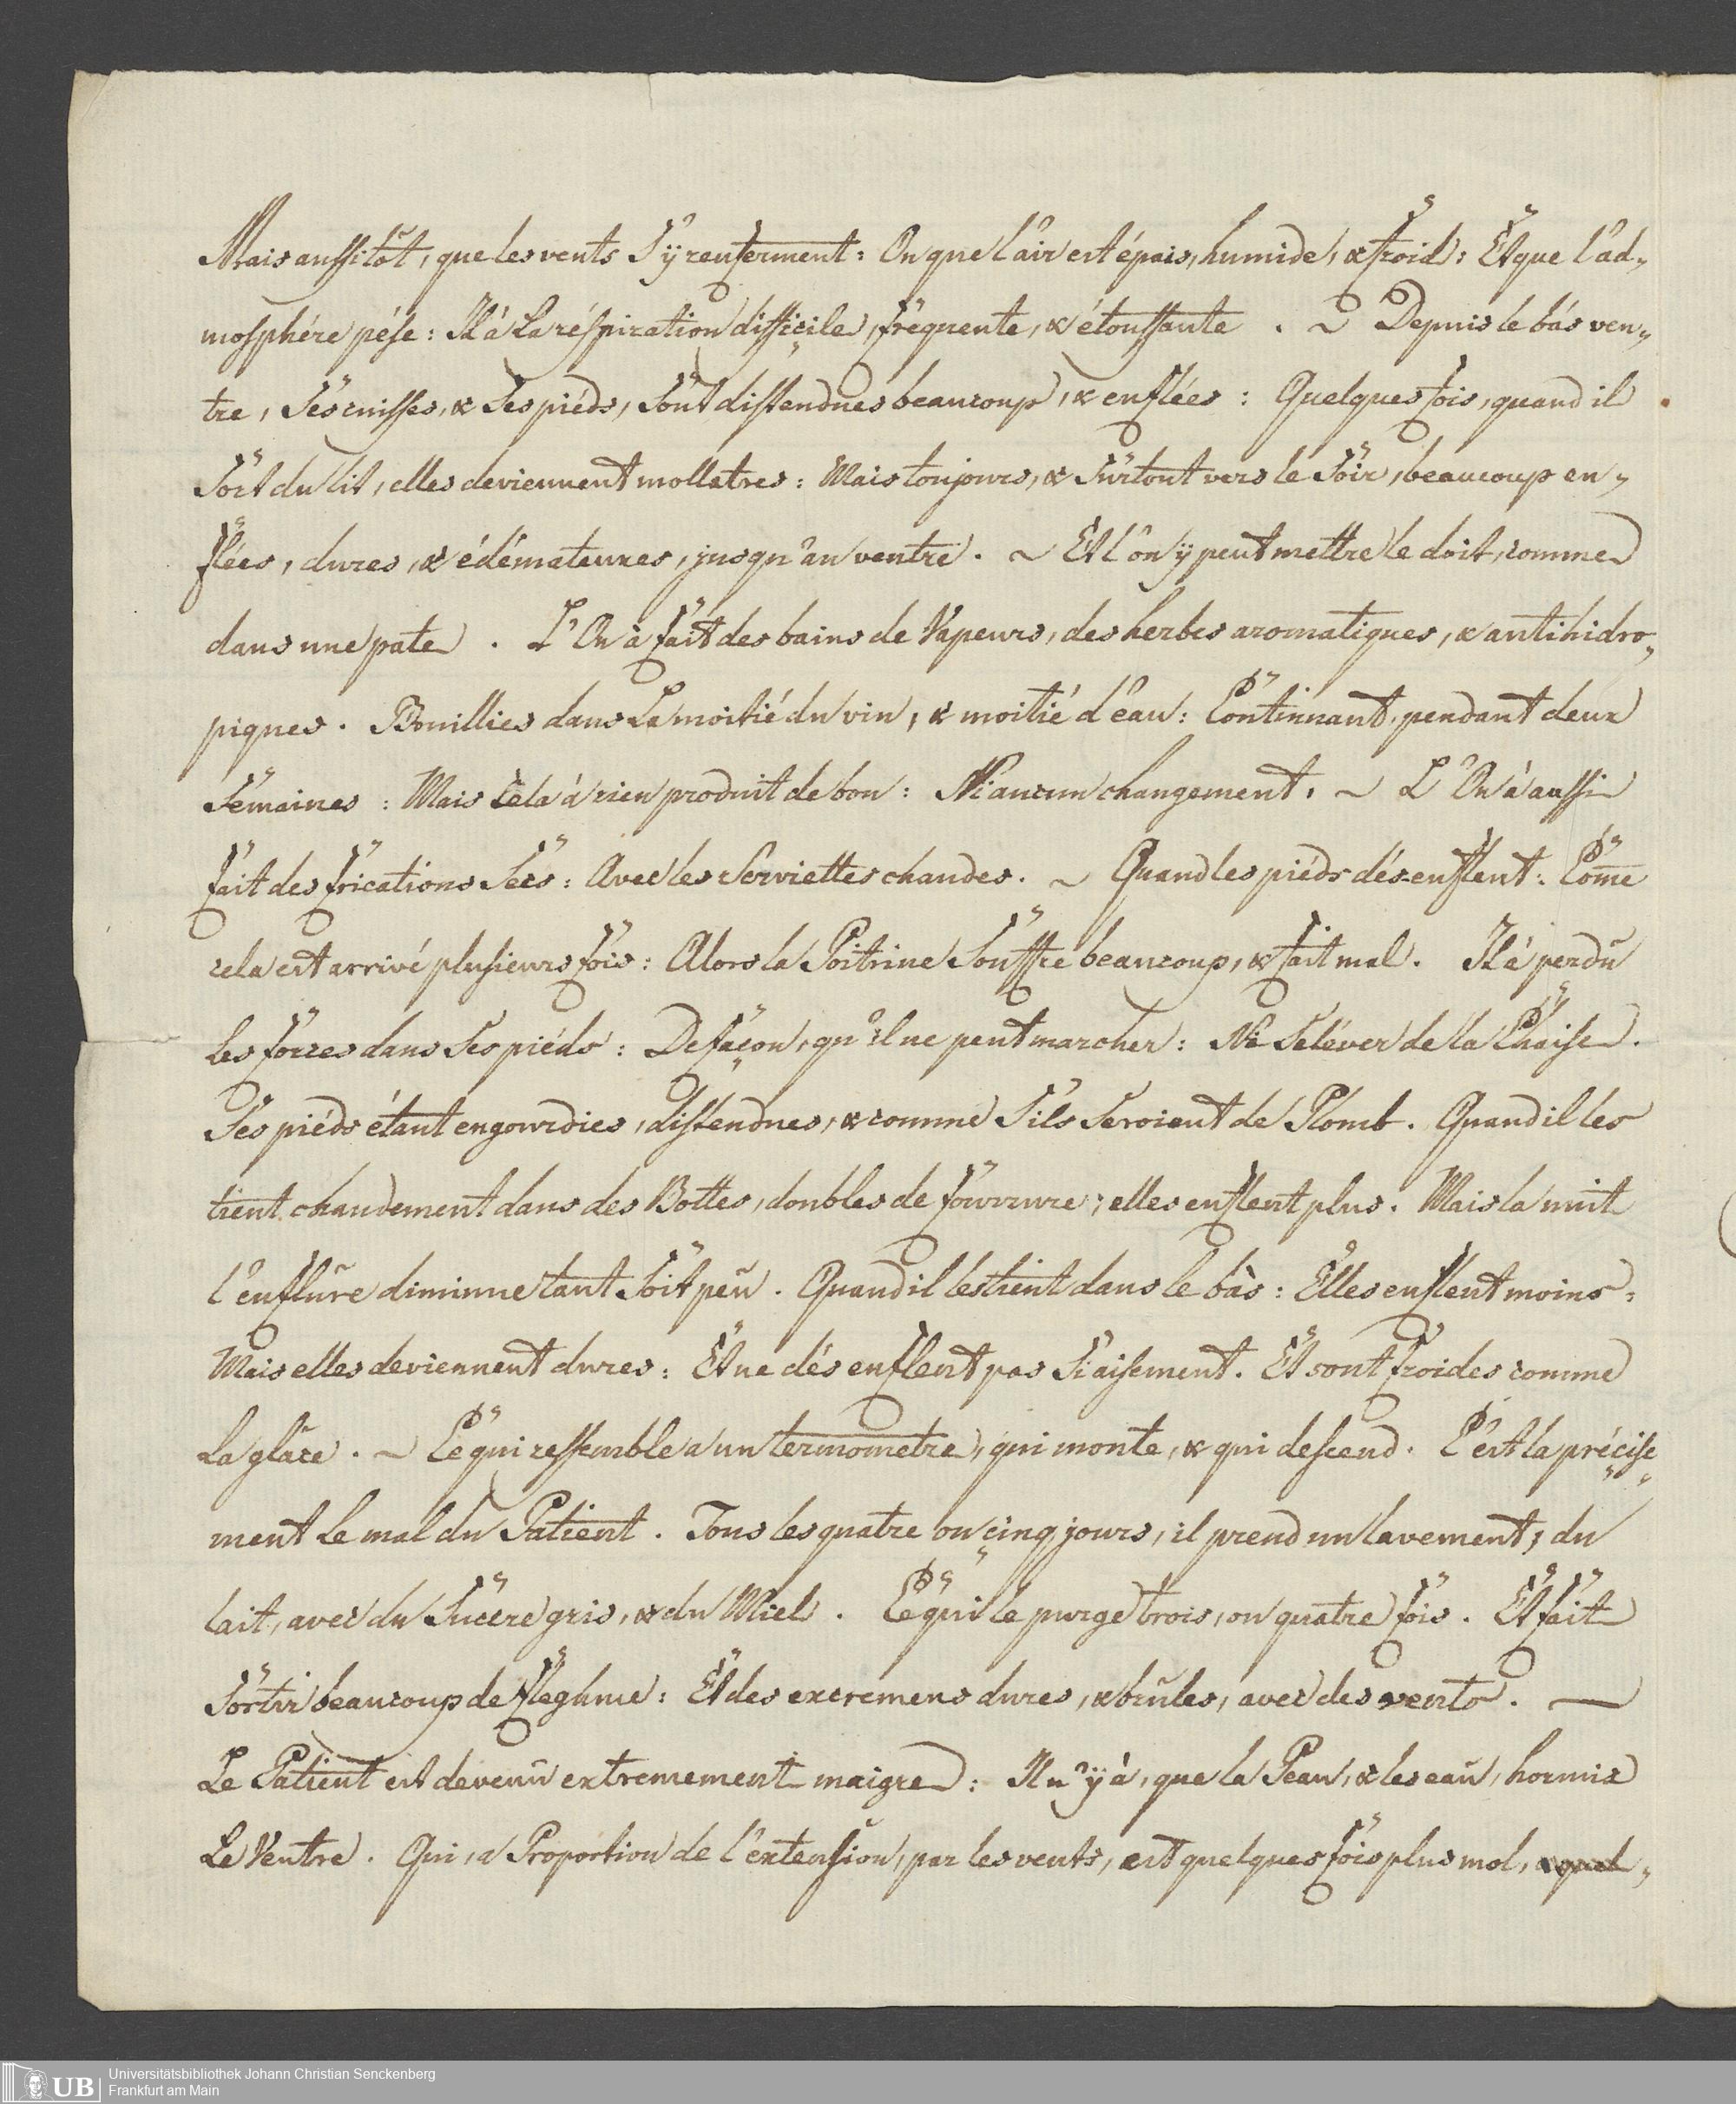 Mais aussitôt, que les vents S'ÿ renferment: Ou que l'air est épais, humide, & froid: Et que l'ad„
mosphére pése: Il à La réspiration difficile, fréquente, & étouffante . ~ Depuis le bás ven„
tre, Ses cuisses, & Ses piéds, Sont distendues beaucoup, & enflées: Quelques fois, quand il
Sort du lit, elles deviennent mollatres: Mais toujours, & Surtout vers le Soir, beaucoup en„
flées, dures, & édémateuxes, jusqu'au ventre. ~ Et l'on ÿ peut mettre le doit, comme
dans une pate . L'On à fait des bains de Vapeurs, des herbes aromatiques, & antihidro„
piques. Bouillies dans La moitié du vin, & moitié d'eau: Continuant, pendant deux
Sémaines: Mais Cela à rien produit de bon: Ni aucun changement. ~ L'On à aussi
fait des frications Sécs: Avec les Serviettes chaudes. ~ Quand les piéds dés-enflent: Come
cela est arrivé plusieurs fois: Alors la Poitrine Souffre beaucoup, & fait mal. Il à perdu
Les forces dans Ses piéds: De façon, qu'il ne peut marcher: Ni Se léver de la Chaise.
Ses piéds étant engourdies, distendues, & comme S'ils Seroient de Plomb. Quand il les
tient chaudement dans des Bottes, doubles de fourrure; elles enflent plus. Mais la nuit
l'enflure diminue tant Soit peu. Quand il les tient dans le bàs: Elles enflent moins:
Mais elles deviennent dures: Et ne dés enflent pas Si aisement. Et sont froides comme
La glace. ~ Ce qui ressemble a un termometre, qui monte, & qui descend. C'est la précise„
ment Le mal du Patient. Tous les quatre ou cinq jours, il prend un lavement, du
lait, avec du Sucere gris, & du Miel. Ce qui le purge trois, ou quatre fois. Et fait
Sortir beaucoup de fleghme: Et des excremens dures, & brules, avec des vents. —
Le Patient est devenu extremement maigre: Il n'ÿ à, que la Peau, & les eau, hormix
Le Ventre. Qui, a Proportion de l'extension, par les vents, est quelques fois plus mol, & quel„
Universitätsbibliothek Johann Christian Senckenberg
UB Frankfurt am Main